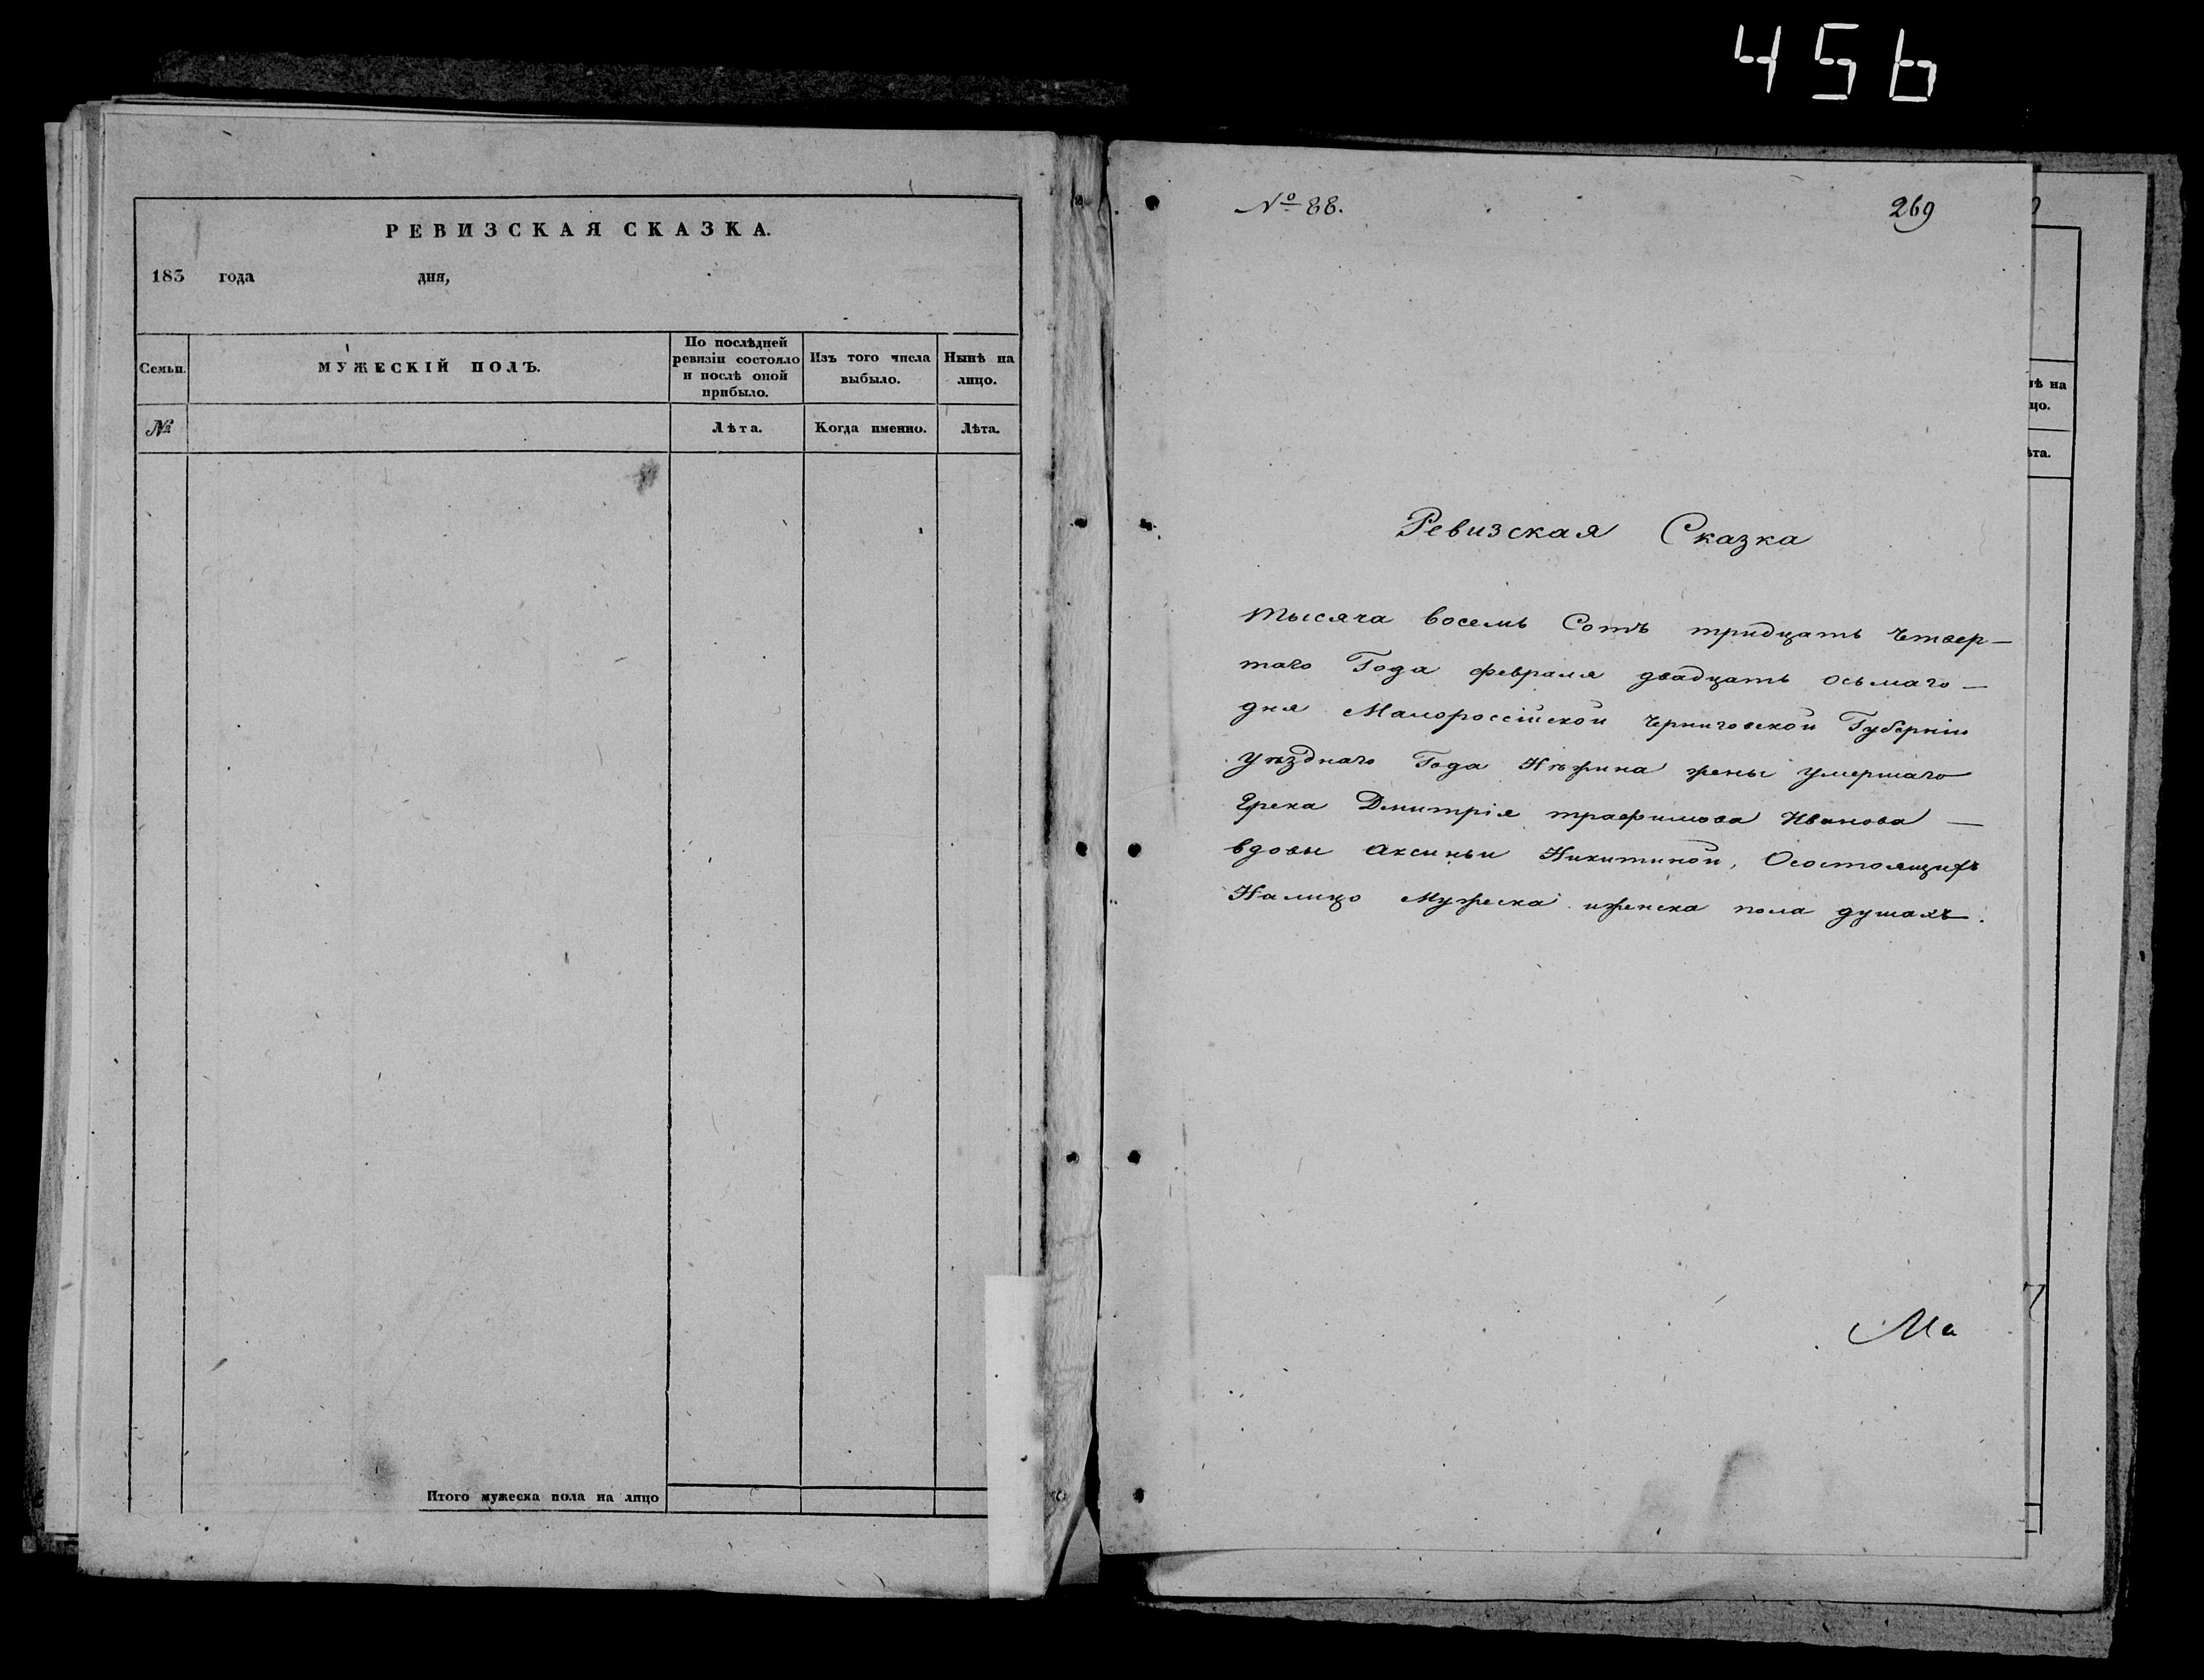 456
РЕВИЗСКАЯ СКАЗКА.
183 года дня,
Семьи.
МУЖЕСКІЙ ПОЛЪ.
По послѣдней
ревизіи состояло
и послѣ оной
прибыло.
Изъ того числа
выбыло.
Нынѣ на
лицо.
№
Лѣта.
Когда именно.
Лѣта.
Итого мужеска пола на лицо
№ 88.
269
Ревизская Сказка
тысяча восемь Сотъ тридцать четвер—
таго Года февраля двадцать осьмаго —
дня Малороссійской Черниговской Губерніи
уѣзднаго Года Нѣжина жены умершаго
Грека Дмитрія трафимова Иванова —
вдовы Аксиньи Никитиной, Осостоящихъ
Налицо Мужеска иженска пола душахъ.
Ма
ѣ на
цо.
ѣта.